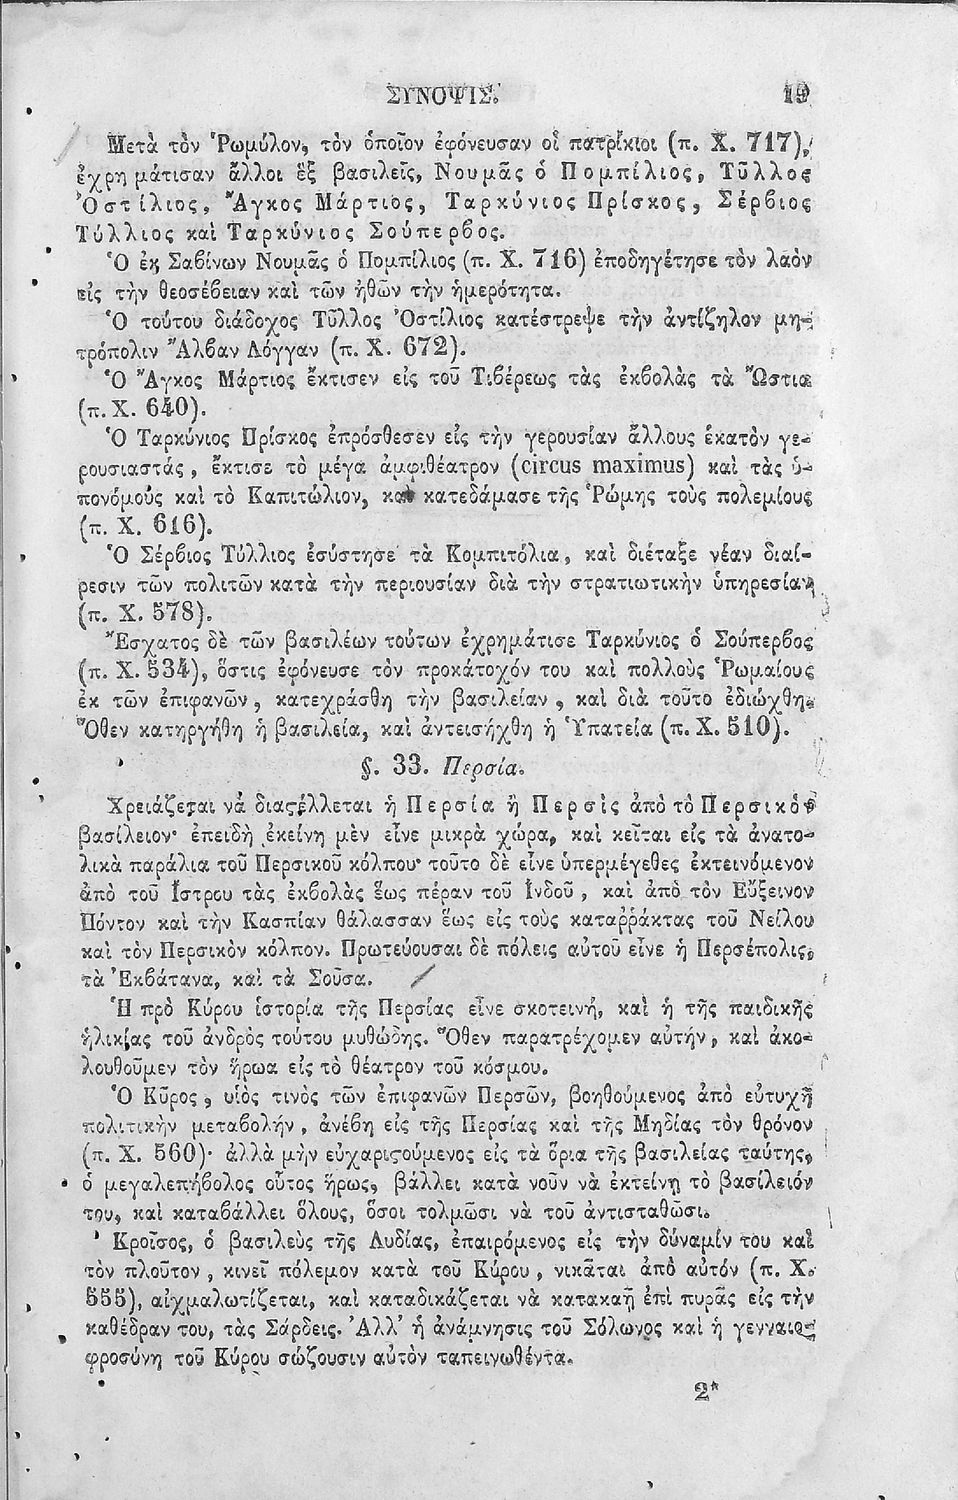 ΣΥΝΟΨΙΣ. 19
Μετὰ τὸν Ῥωμύλον, τὸν ὁποῖον ἐφόνευσαν οἱ πατρίκιοι (π. Χ. 717),
ἐχρημάτισαν ἄλλοι ἓξ βασιλεῖς, Νουμᾶς ὁ Πομπίλιος, Τῦλλος
Ὁστίλιος, Ἄγκος Μάρτιος, Ταρκύνιος Πρίσκος, Σέρβιος
Τύλλιος καὶ Ταρκύνιος Σούπερβος.
Ὁ ἐκ Σαβίνων Νουμᾶς ὁ Πομπίλιος (π. Χ. 716) ἐποδηγέτησε τὸν λαὸν
εἰς τὴν θεοσέβειαν καὶ τῶν ἠθῶν τὴν ἡμερότητα.
Ὁ τούτου διάδοχος Τῦλλος Ὁστίλιος κατέστρεψε τὴν ἀντίζηλον μη-
τρόπολιν Ἄλβαν Λόγγαν (π. Χ. 672).
Ὁ Ἄγκος Μάρτιος ἔκτισεν εἰς τοῦ Τιβέρεως τὰς ἐκβολὰς τὰ Ὤστια
(π. Χ. 640).
Ὁ Ταρκύνιος Πρίσκος ἐπρόσθεσεν εἰς τὴν γερουσίαν ἄλλους ἑκατὸν γε-
ρουσιαστάς, ἔκτισε τὸ μέγα ἀμφιθέατρον (circus maximus) καὶ τὰς ὑ-
πονόμους καὶ τὸ Καπιτώλιον, καὶ κατεδάμασε τῆς Ῥώμης τοὺς πολεμίους
(π. Χ. 616).
Ὁ Σέρβιος Τύλλιος ἐσύστησε τὰ Κομπιτόλια, καὶ διέταξε νέαν διαί-
ρεσιν τῶν πολιτῶν κατὰ τὴν περιουσίαν διὰ τὴν στρατιωτικὴν ὑπηρεσίαν
(π. Χ. 578).
Ἔσχατος δὲ τῶν βασιλέων τούτων ἐχρημάτισε Ταρκύνιος ὁ Σούπερβος
(π. Χ. 534), ὅστις ἐφόνευσε τὸν προκάτοχόν του καὶ πολλοὺς Ῥωμαίους
ἐκ τῶν ἐπιφανῶν, κατεχράσθη τὴν βασιλείαν, καὶ διὰ τοῦτο ἐδιώχθη.
Ὅθεν κατηργήθη ἡ βασιλεία, καὶ ἀντεισήχθη ἡ Ὑπατεία (π. Χ. 510).
§. 33. Περσία.
Χρειάζεται νὰ διαστέλλεται ἡ Περσία ἢ Περσὶς ἀπὸ τὸ Περσικὸν
βασίλειον· ἐπειδὴ ἐκείνη μὲν εἶνε μικρὰ χώρα, καὶ κεῖται εἰς τὰ ἀνατο-
λικὰ παράλια τοῦ Περσικοῦ κόλπου· τοῦτο δὲ εἶνε ὑπερμέγεθες ἐκτεινόμενον
ἀπὸ τοῦ Ἴστρου τὰς ἐκβολὰς ἕως πέραν τοῦ Ἰνδοῦ, καὶ ἀπὸ τὸν Εὔξεινον
Πόντον καὶ τὴν Κασπίαν θάλασσαν ἕως εἰς τοὺς καταῤῥάκτας τοῦ Νείλου
καὶ τὸν Περσικὸν κόλπον. Πρωτεύουσαι δὲ πόλεις αὐτοῦ εἶνε ἡ Περσέπολις,
τὰ Ἐκβάτανα, καὶ τὰ Σοῦσα.
Ἡ πρὸ Κύρου ἱστορία τῆς Περσίας εἶνε σκοτεινή, καὶ ἡ τῆς παιδικῆς
ἡλικίας τοῦ ἀνδρὸς τούτου μυθώδης. Ὅθεν παρατρέχομεν αὐτήν, καὶ ἀκο-
λουθοῦμεν τὸν ἥρωα εἰς τὸ θέατρον τοῦ κόσμου.
Ὁ Κῦρος, υἱὸς τινὸς τῶν ἐπιφανῶν Περσῶν, βοηθούμενος ἀπὸ εὐτυχῆ
πολιτικὴν μεταβολήν, ἀνέβη εἰς τῆς Περσίας καὶ τῆς Μηδίας τὸν θρόνον
(π. Χ. 560)· ἀλλὰ μὴν εὐχαριστούμενος εἰς τὰ ὅρια τῆς βασιλείας ταύτης,
ὁ μεγαλεπήβολος οὗτος ἥρως, βάλλει κατὰ νοῦν νὰ ἐκτείνῃ τὸ βασίλειόν
του, καὶ καταβάλλει ὅλους, ὅσοι τολμῶσι νὰ τοῦ ἀντισταθῶσι.
Κροῖσος, ὁ βασιλεὺς τῆς Λυδίας, ἐπαιρόμενος εἰς τὴν δύναμίν του καὶ
τὸν πλοῦτον, κινεῖ πόλεμον κατὰ τοῦ Κύρου, νικᾶται ἀπὸ αὐτόν (π. Χ.
555), αἰχμαλωτίζεται, καὶ καταδικάζεται νὰ κατακαῇ ἐπὶ πυρᾶς εἰς τὴν
καθέδραν του, τὰς Σάρδεις. Ἀλλ' ἡ ἀνάμνησις τοῦ Σόλωνος καὶ ἡ γενναιο-
φροσύνη τοῦ Κύρου σώζουσιν αὐτὸν ταπεινωθέντα.
2*